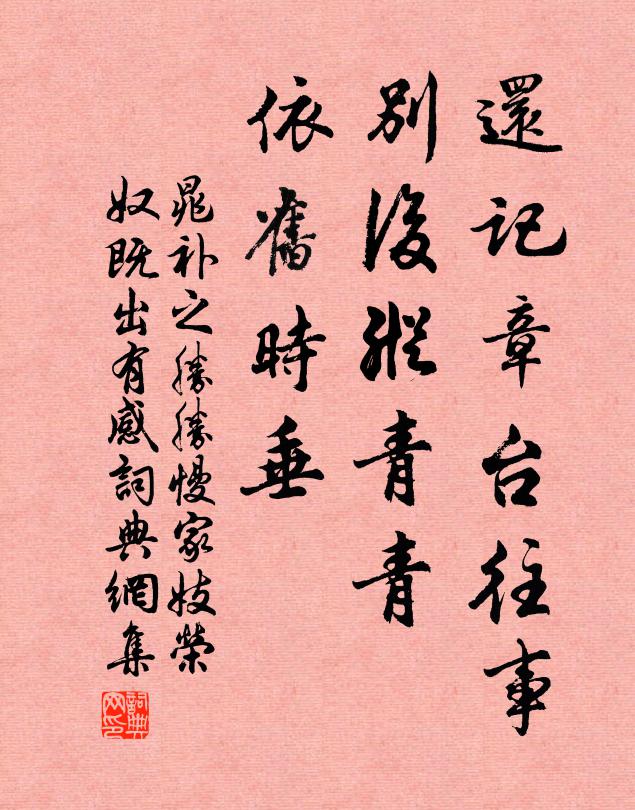 還記章台往事
別後縱青青
依舊時垂
晁补之勝勝慢家妓榮
奴既出有感詞典網集
詞典網印